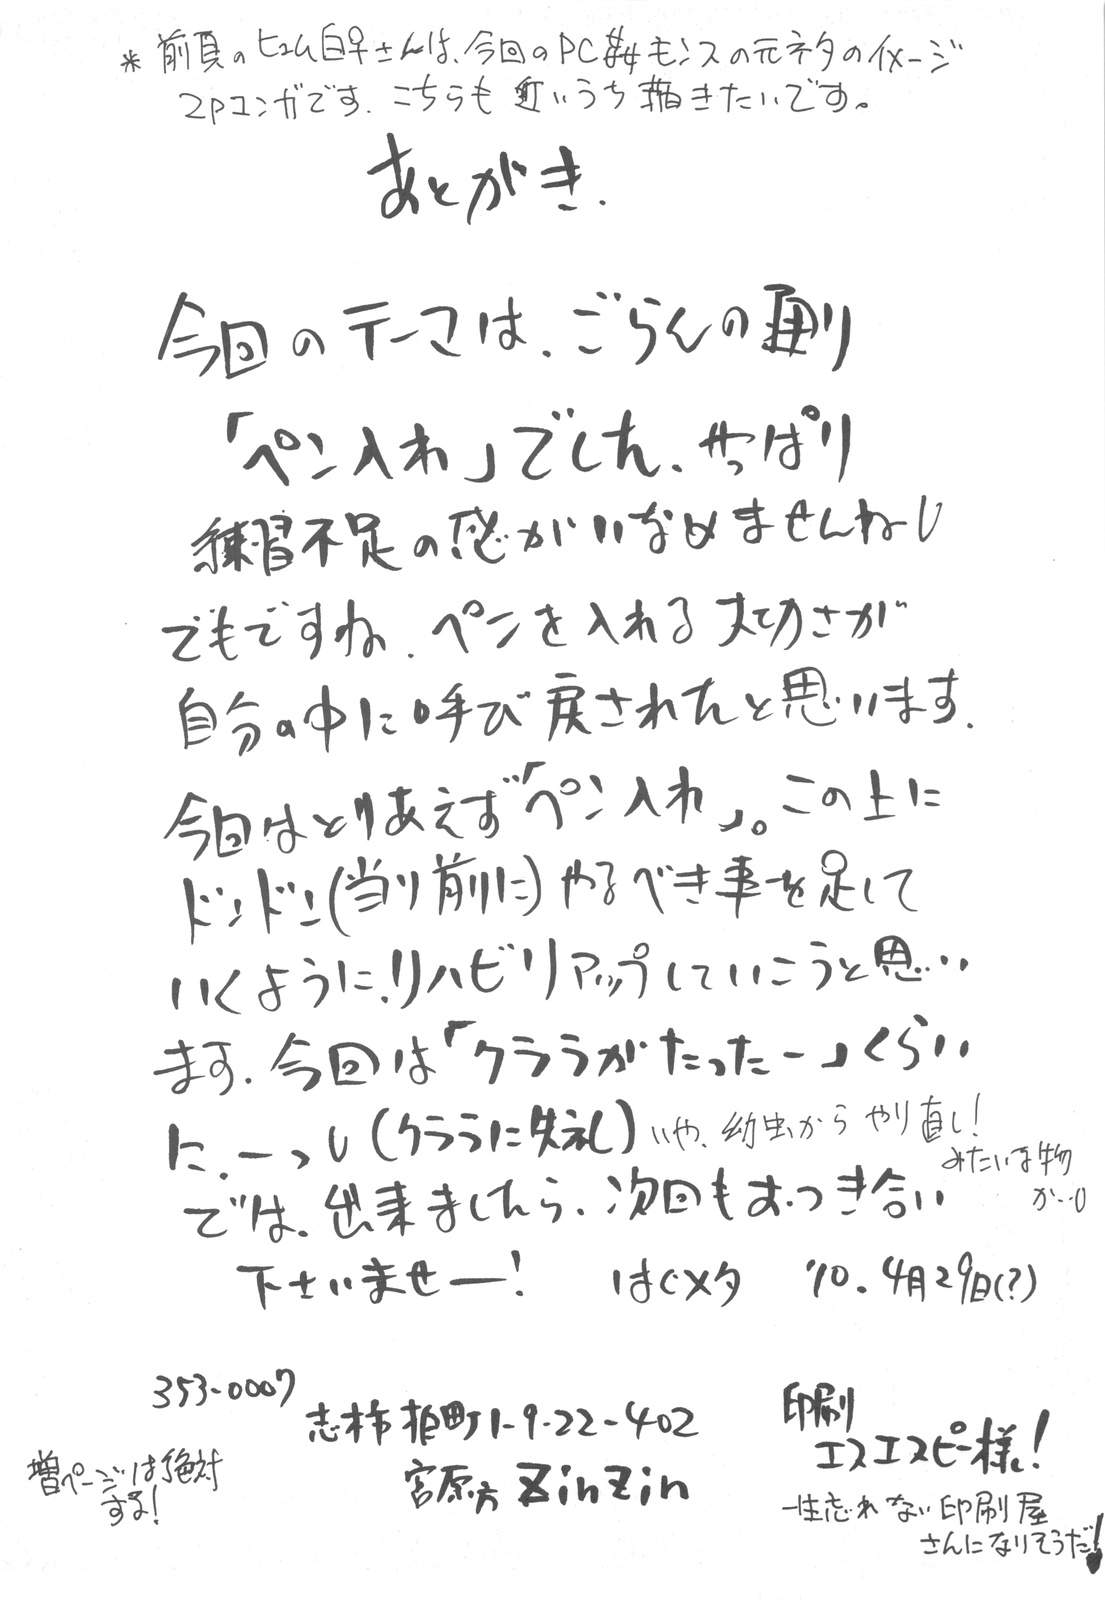 *前頁のヒュム白♀さんは、今回のPC 毒モンスの元ネタのイメージ
2Pコンガです. こちらも近いうち描きたいです。
あとがき.
今回のテーマは、ごらんの通り
「ペン入れ」でした、やっぱり
練習不足の感がいなめませんねーし
でもですね、ペンを入れる大切さが
自分の中に呼び戻されたと思います.
今回はとりあえず「ペン入れ」。この上に
ドンドン(当り前に)やるべき事を足して
いくように、リハビリアップしていこうと思い
ます. 今回は「クララがたったー」くらい
に、ーっし(クララに失礼) いや、幼虫からやり直し!
みたいな物
か…
では、出来ましたら、次回もおつき合い
下さいませー! はぐメタ '10.4月29日(?)
353-0007
志木市柏町1-9-22-402
宮原方 ZinZin
増ページは絶対
する!
印刷
エスエスピー様!
一生忘れない印刷屋
さんになりそうだ!